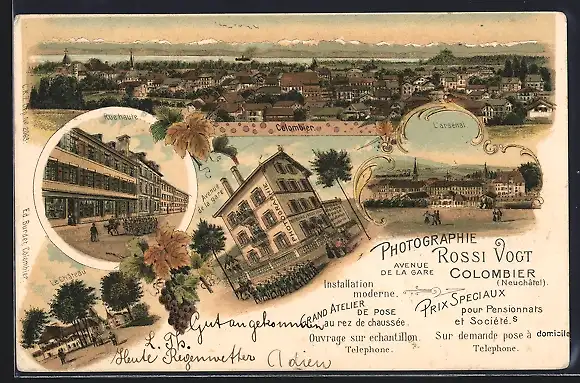 Colombier
Rue haute
L'arsenal
Avenue
de la gare
PHOTOGRAPHIE
Le Château
Ed. Burdet, Colombier
PHOTOGRAPHIE
ROSSI VOGT
AVENUE
DE LA GARE
COLOMBIER
(Neuchâtel).
Installation
moderne.
GRAND ATELIER
DE POSE
au rez de chaussée.
Ouvrage sur echantillon.
Telephone.
PRIX SPECIAUX
pour Pensionnats
et Société.s
Sur demande pose à domicile
Telephone.
Gut angekommen
Heute Regenwetter Adieu